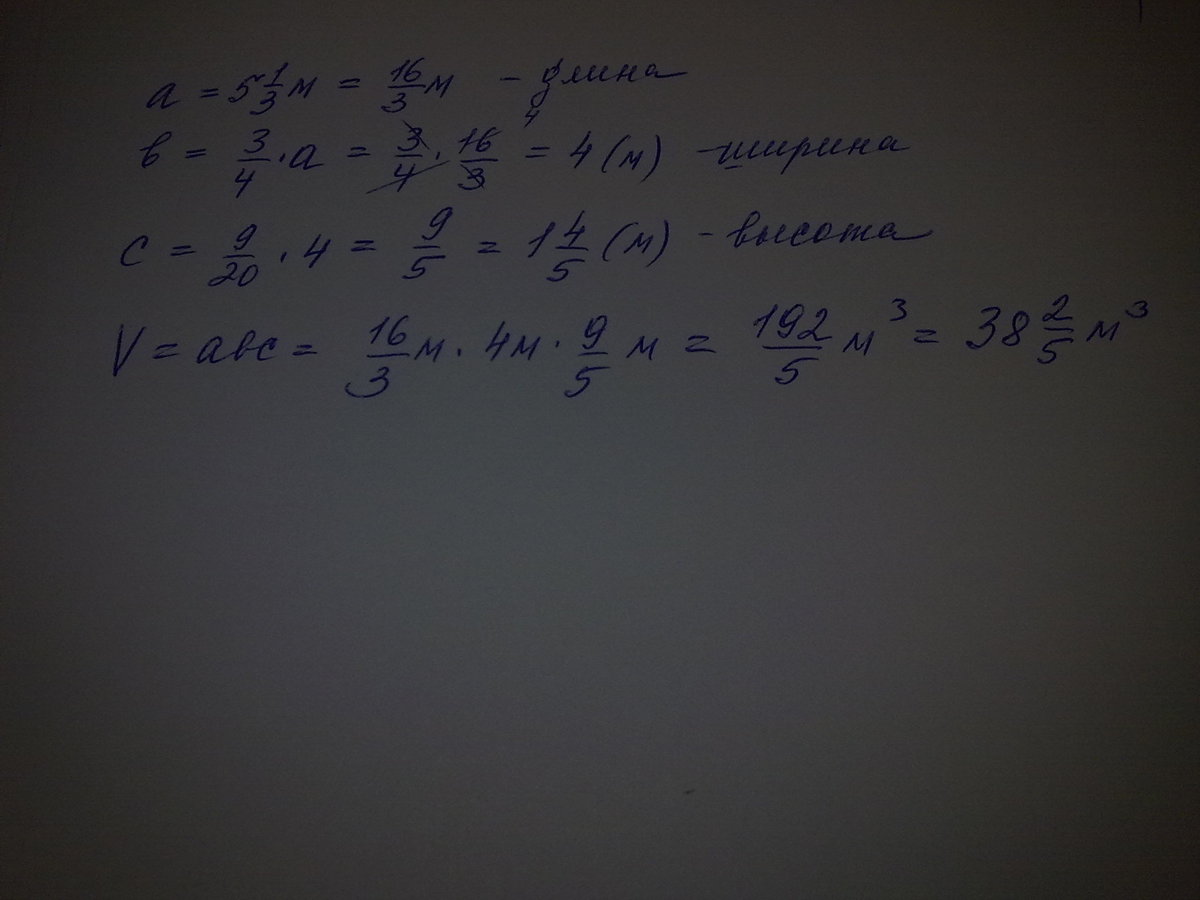 a = 5 1/3 м = 16/3 м - длина
в = 3/4 · a = 3/4 · 16/3 4 = 4 (м) - ширина
c = 9/20 · 4 = 9/5 = 1 4/5 (м) - высота
V = aвc = 16/3 м · 4м · 9/5 м = 192/5 м³ = 38 2/5 м³